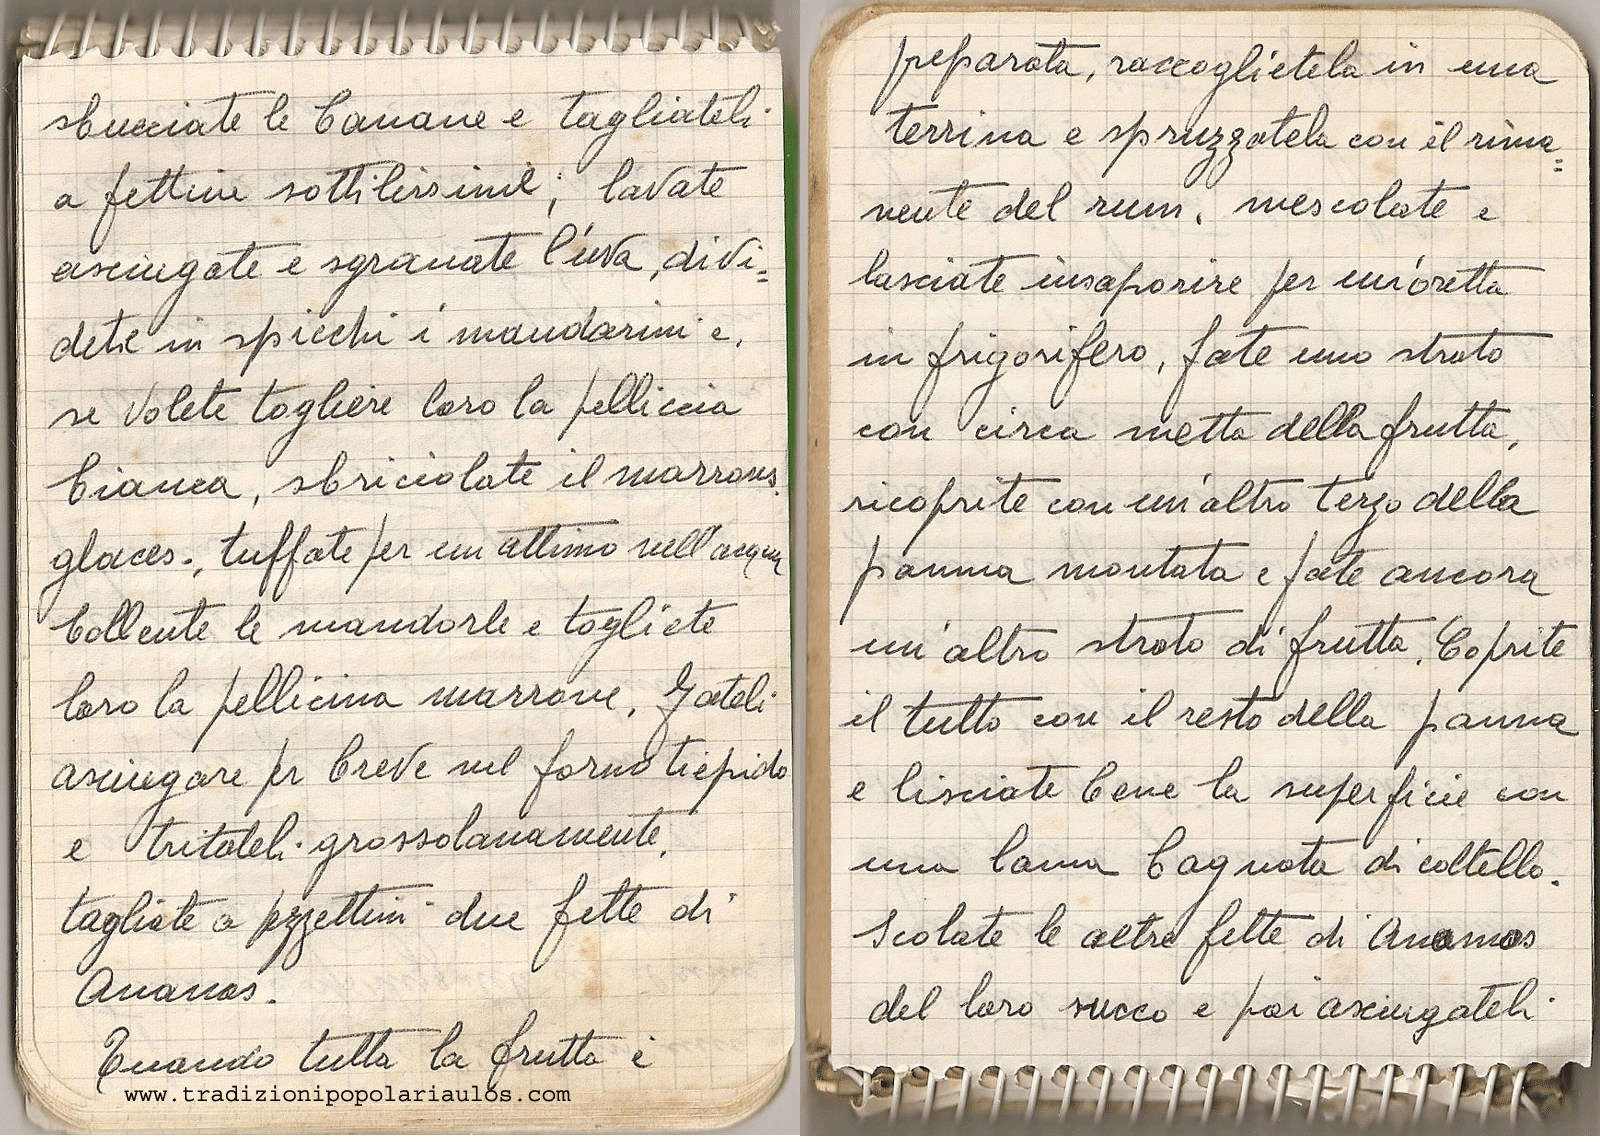 sbucciate le banane e tagliateli
a fettine sottilissime; lavate
asciugate e sgranate l'uva, divi=
dete in spicchi i mandarini e,
se volete togliere loro la pelliccia
bianca, sbriciolate il marrons
glaces., tuffate per un attimo nell'acqua
bollente le mandorle e togliete
loro la pellicina marrone. Fateli
asciugare per breve nel forno tiepido
e tritateli grossolanamente.
tagliate a pezzettini due fette di
Ananas.
Quando tutta la frutta è
www.tradizionipopolariaulos.com
preparata, raccoglietela in una
terrina e spruzzatela con il rima=
nente del rum. mescolate e
lasciate insaporire per un'oretta
in frigorifero, fate uno strato
con circa metta della frutta,
ricoprite con un'altro terzo della
panna montata e fate ancora
un'altro strato di frutta. Coprite
il tutto con il resto della panna
e lisciate bene la superficie con
una lama bagnata di coltello.
Scolate le altre fette di Ananas
del loro succo e poi asciugateli